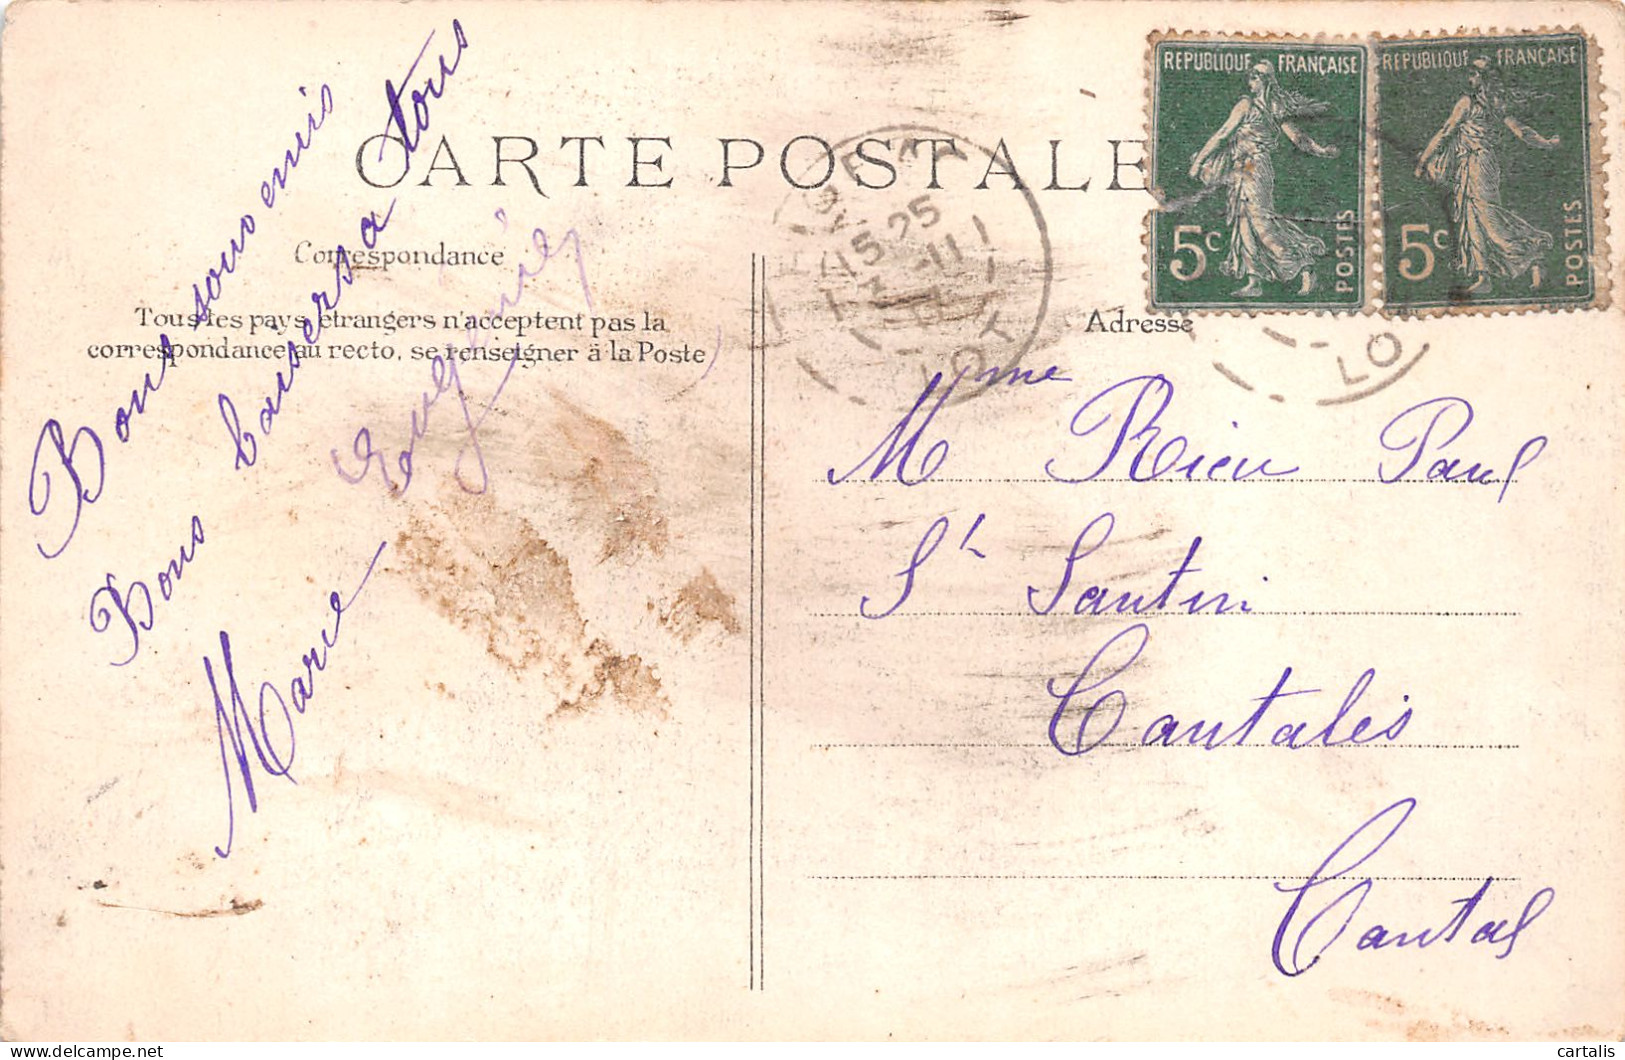 CARTE POSTALE
Correspondance
Tous les pays étrangers n'acceptent pas la
correspondance au recto, se renseigner à la Poste
Bons souvenirs
Bons baisers a tous
Marie
Adresse
Mme Rieu Paul
St Santin
Cantalès
Cantal
REPUBLIQUE FRANÇAISE
5c
POSTES
REPUBLIQUE FRANÇAISE
5c
POSTES
15 25
LOT
LOT
cartalis
delcampe.net